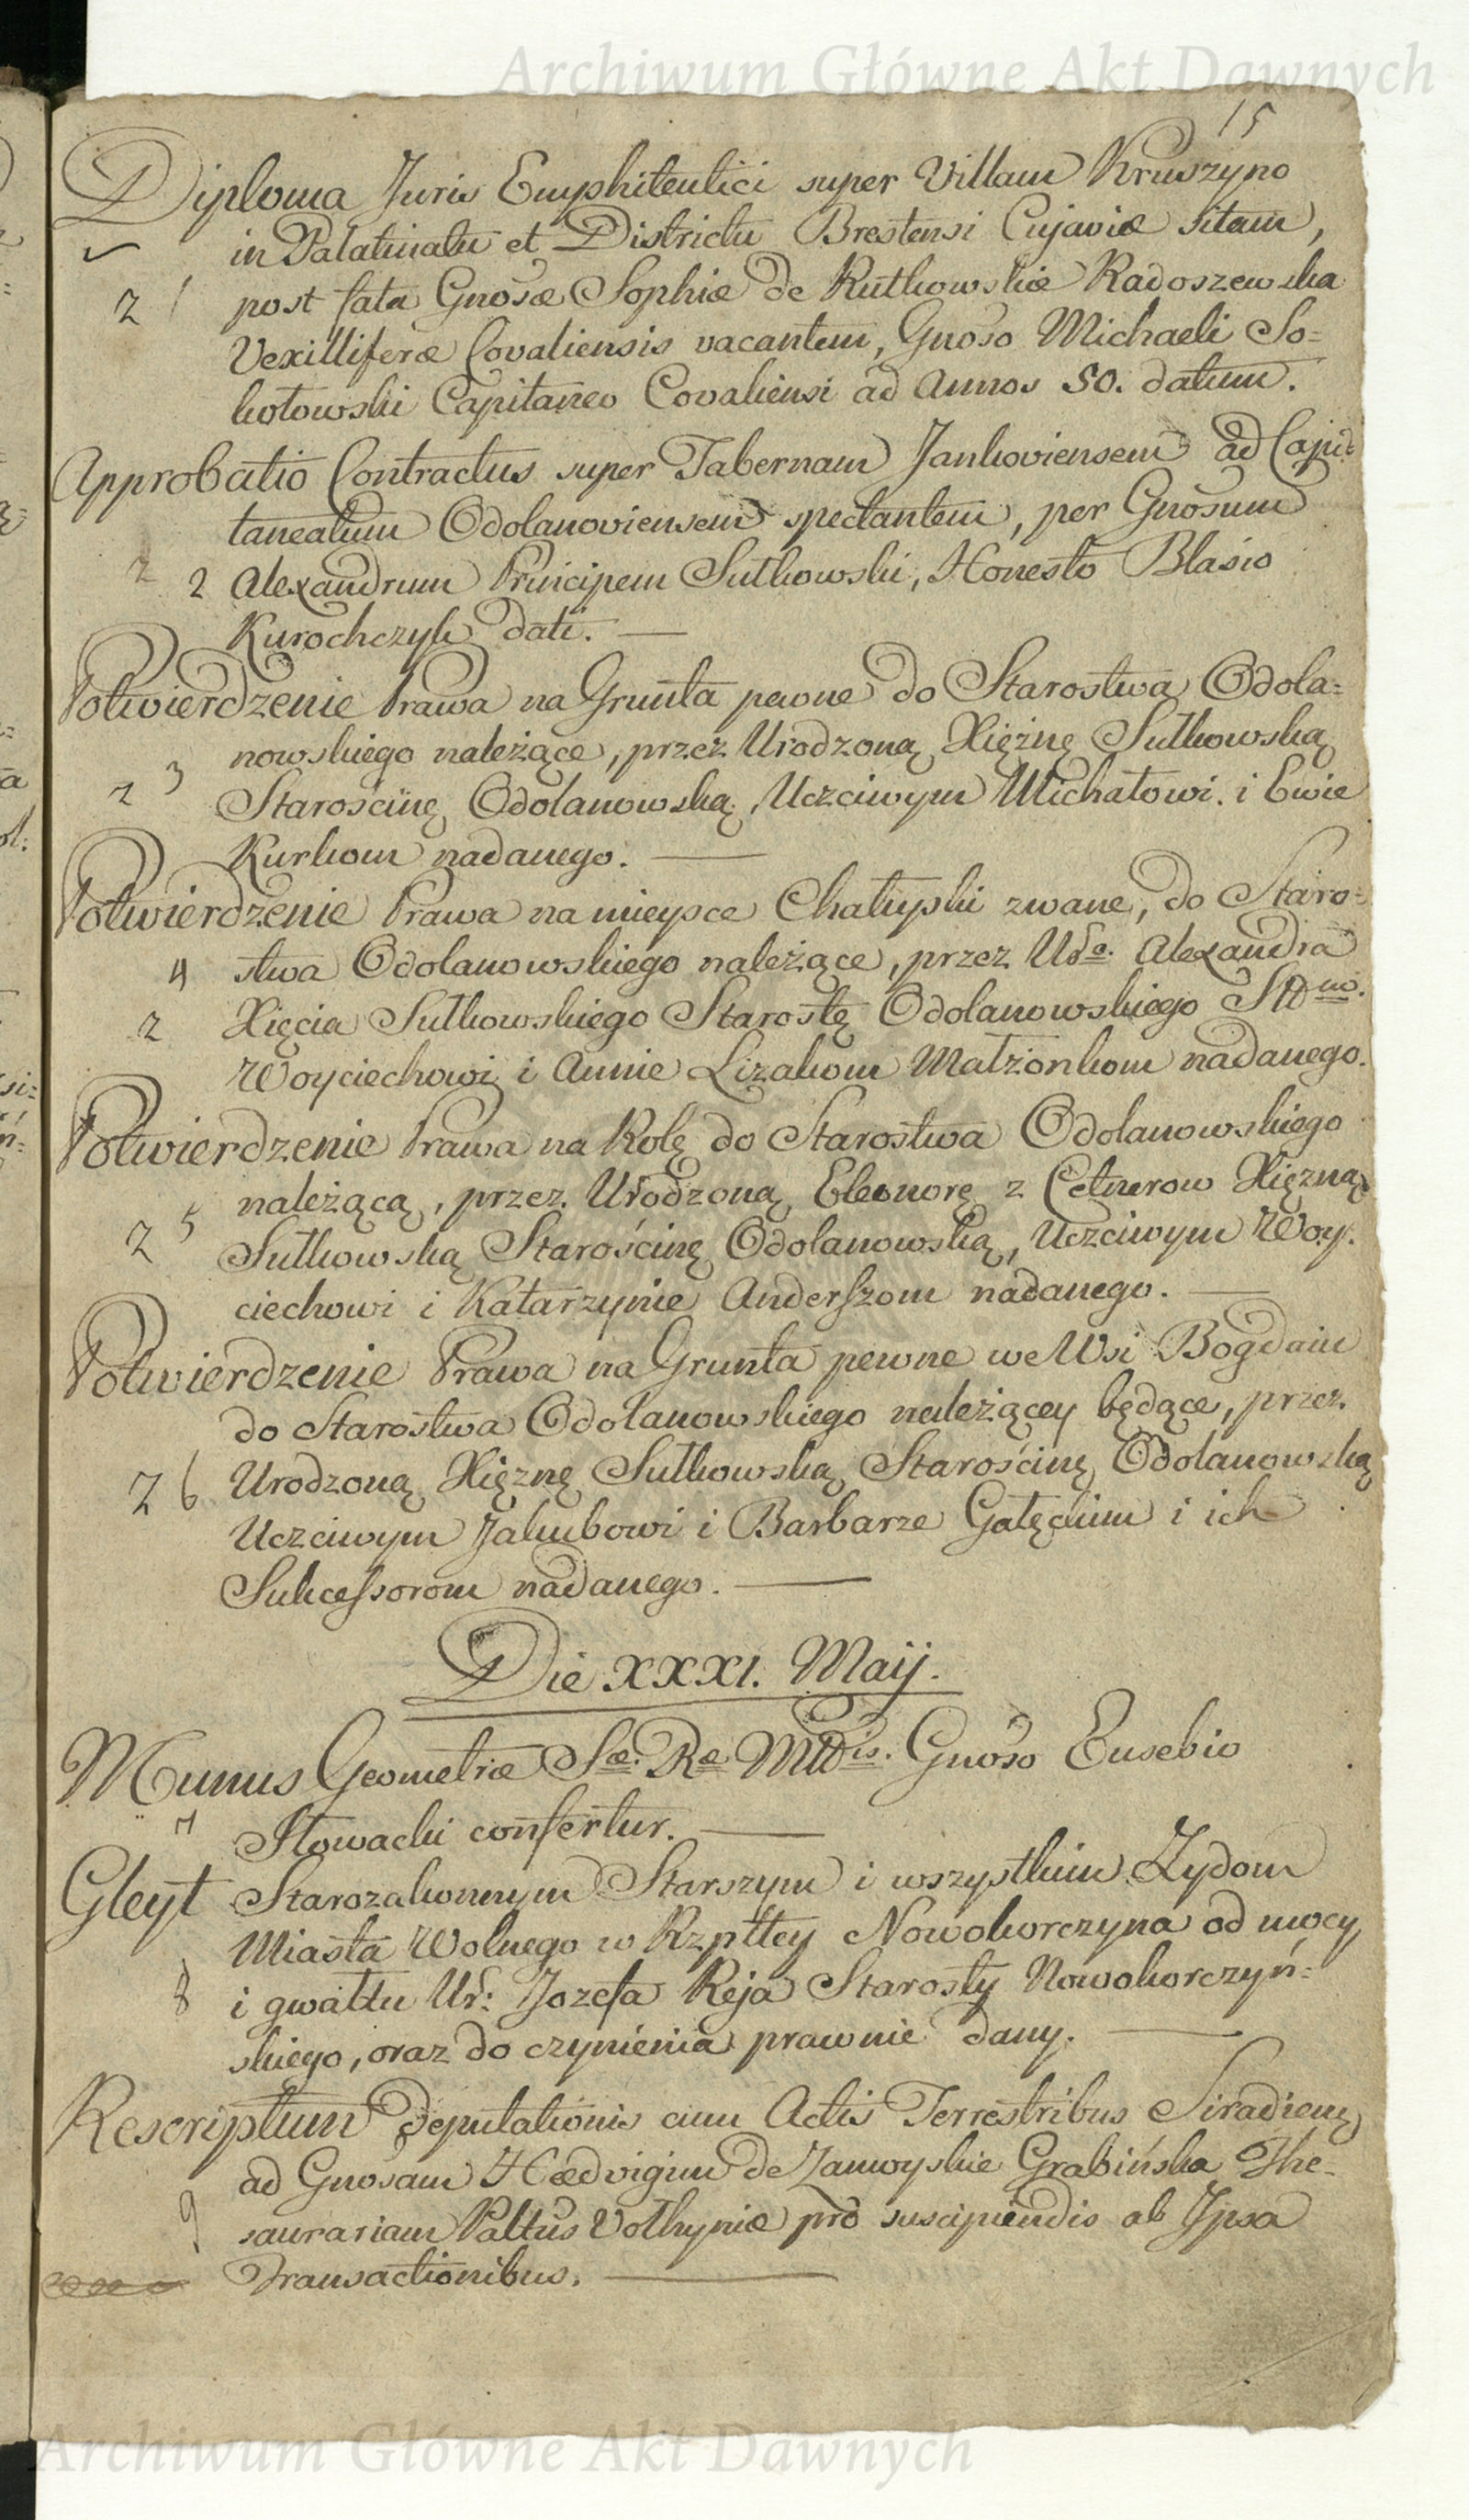 Archiwum Główne Akt Dawnych
15
Diploma Juris Emphiteutici super Villam Kruszyno
in Palatinatu et Districtu Brestensi Cujaviæ sitam,
2 1 post fata Gnosæ Sophiæ de Rutkowskie Radoszewska
Vexilliferæ Covaliensis vacantem, Gnoso Michaeli So=
kotowski Capitaneo Covaliensi ad Annos 50. datum.
Approbatio Contractus super Tabernam Jankoviensem ad Capi=
taneatum Odolanoviensem spectantem, per Gnosum
2 2 Alexandrum Principem Sułkowski, Honesto Blasio
Kurochczyk dati. —
Potwierdzenie Prawa na Grunta pewne do Starostwa Odola=
nowskiego należące, przez Urodzoną Xiężnę Sułkowską
2 3 Starościnę Odolanowską, Uczciwym Michałowi i Ewie
Kurkom nadanego. —
Potwierdzenie Prawa na mieysce Chałupki zwane, do Staro=
4 stwa Odolanowskiego należące, przez Uro. Alexandra
2 Xięcia Sułkowskiego Starostę Odolanowskiego
Woyciechowi i Annie Lizakom Małżonkom nadanego.
Potwierdzenie Prawa na Rolę do Starostwa Odolanowskiego
należącą, przez Urodzoną Eleonorę z Cetnerow Xiężną
2 5 Sułkowską Starościnę Odolanowską, Uczciwym Woy.
ciechowi i Katarzynie Anderszom nadanego. —
Potwierdzenie Prawa na Grunta pewne we Wsi Bogdaiu
do Starostwa Odolanowskiego należącey będące, przez
2 6 Urodzoną Xiężnę Sułkowską Starościnę Odolanowską
Uczciwym Jakubowi i Barbarze Gałęckim i ich
Sukcessorom nadanego. —
Die XXXI. Maij.
Munus Geometræ Sæ. Ræ. Mttis. Gnoso Eusebio
7 Słowacki confertur. —
Gleyt Starozakonnym Starszym i wszystkim Żydom
Miasta Wolnego w Rzpltey Nowokorczyna od mocy
8 i gwałtu Ur: Jozefa Reja Starosty Nowokorczyń=
skiego, oraz do czynienia prawnie dany. —
Rescriptum deputationis cum Actis Terrestribus Siradien
ad Gnosam Hedvigim de Zamoyskie Grabińska The=
9 saurariam Paltus Volhyniæ pro suscipiendis ab Ipsa
Transactionibus. —
Archiwum Główne Akt Dawnych